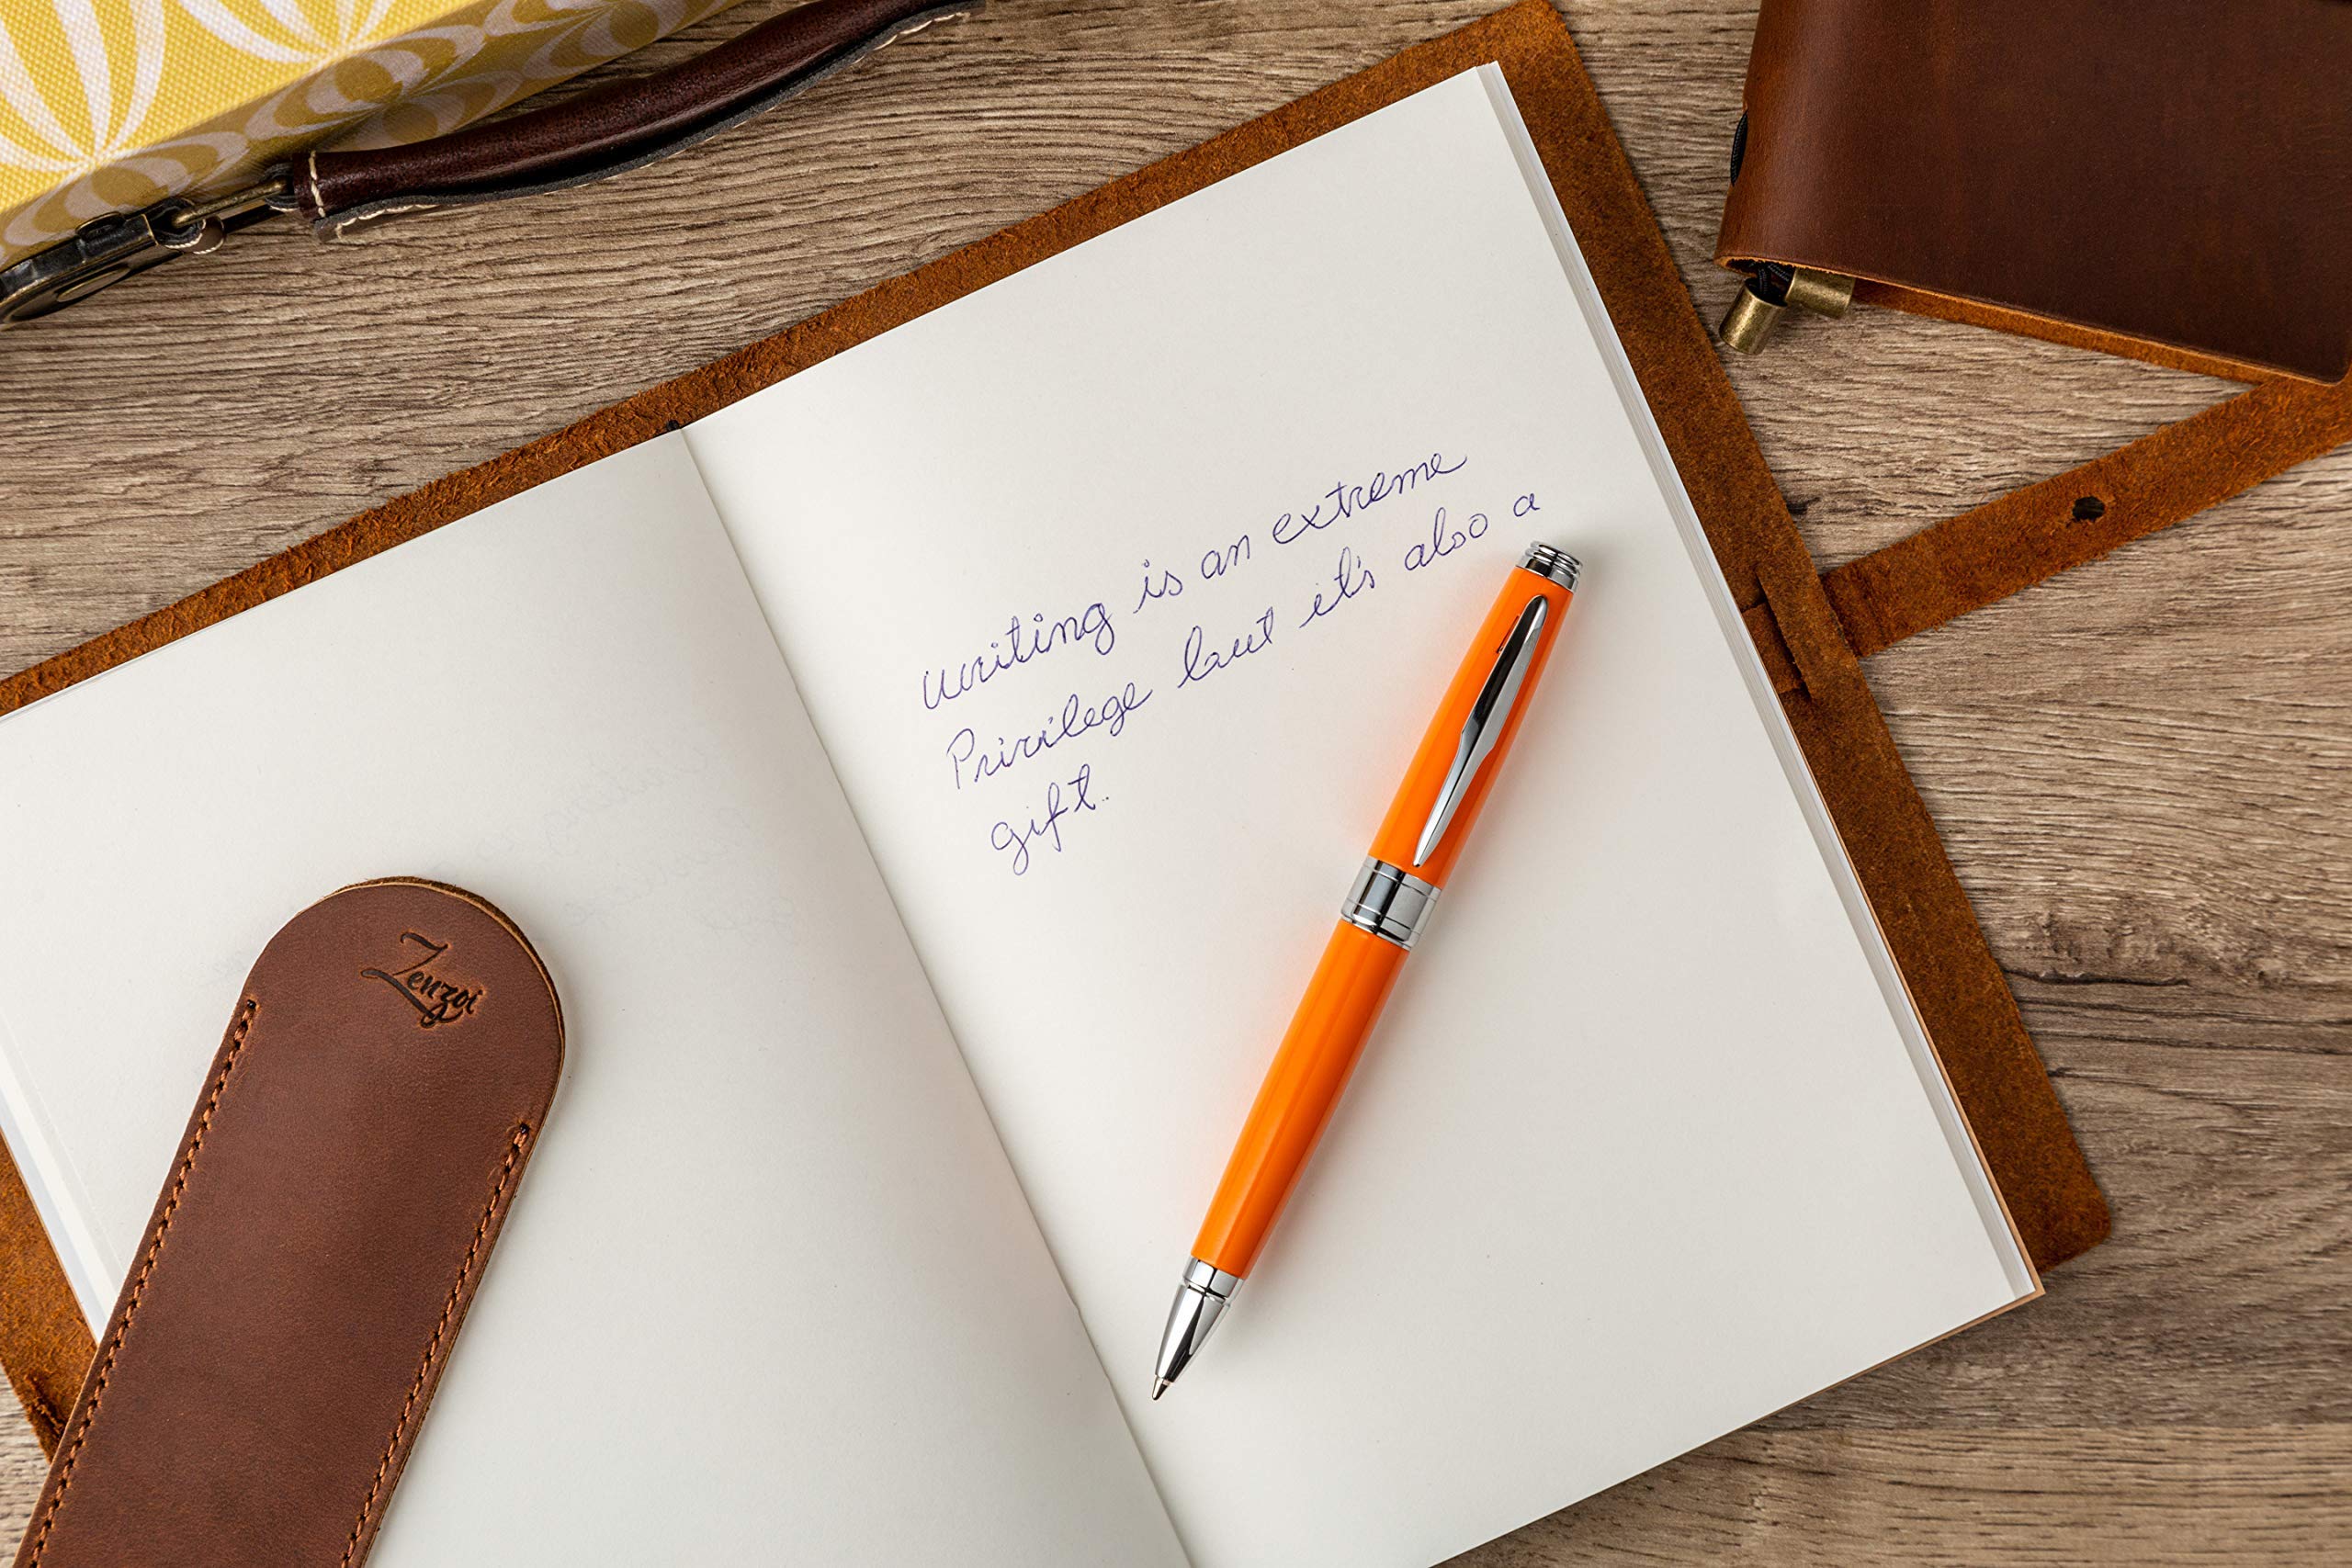 writing is an extreme
Privilege but it's also a
gift..
Zenzoi